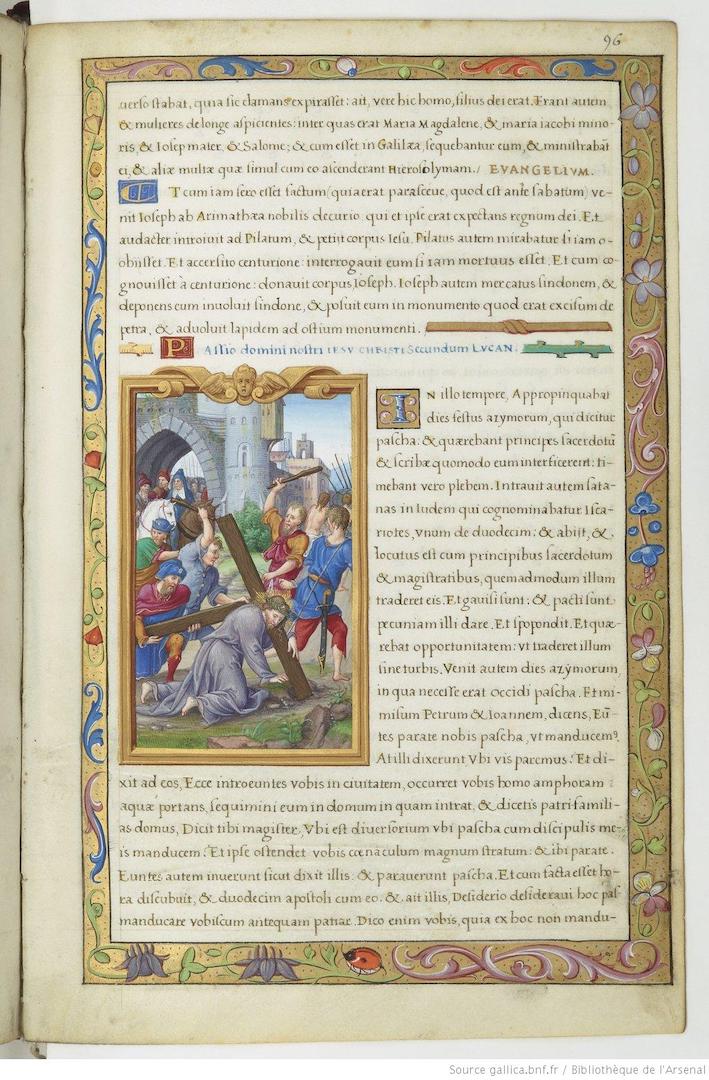 96
uerso stabat, quia sic clamans expirasset: ait, vere hic homo, filius dei erat. Erant autem
& mulieres de longe aspicientes: inter quas erat Maria Magdalene, & maria iacobi mino-
ris, & Ioseph mater, & Salome; & cum esset in Galilæa, sequebantur eum, & ministrabāt
ei, & aliæ multæ quæ simul cum eo ascenderant Hierosolymam./ EVANGELIVM.
ET cum iam sero esset factum (quia erat parasceue, quod est ante sabatum) ve-
nit Ioseph ab Arimathæa nobilis decurio, qui et ipse erat expectans regnum dei. Et
audacter introiuit ad Pilatum, & petiit corpus Iesu. Pilatus autem mirabatur si iam o-
obiisset. Et accersito centurione: interrogauit eum si iam mortuus esset. Et cum co-
gnouisset à centurione: donauit corpus Ioseph. Ioseph autem mercatus sindonem, &
deponens eum inuoluit sindone, & posuit eum in monumento quod erat excisum de
petra, & aduoluit lapidem ad ostium monumenti.
PAssio domini nostri IESV CHRISTI Secundum LVCAN.
IN illo tempore, Appropinquabat
dies festus azymorum, qui dicitur
pascha: & quærebant principes sacerdotū
& scribæ quomodo eum interficerent: ti-
mebant vero plebem. Intrauit autem sata-
nas in Iudem qui cognominabatur Isca-
riotes, vnum de duodecim: & abiit, &
locutus est cum principibus sacerdotum
& magistratibus, quemadmodum illum
traderet eis. Et gauisi sunt: & pacti sunt
pecuniam illi dare. Et spopondit. Et quæ-
rebat opportunitatem: vt traderet illum
sine turbis. Venit autem dies azymorum,
in qua necesse erat occidi pascha. Et mi-
misum Petrum & Ioannem, dicens, Eū
tes parate nobis pascha, vt manducemꝰ.
At illi dixerunt Vbi vis paremus? Et di-
xit ad eos, Ecce introeuntes vobis in ciuitatem, occurret vobis homo amphoram
aquæ portans, sequimini eum in domum in quam intrat, & dicetis patri famili-
as domus, Dicit tibi magister, Vbi est diuersorium vbi pascha cum discipulis me-
is manducem? Et ipse ostendet vobis cœnaculum magnum stratum: & ibi parate.
Euntes autem inuenerunt sicut dixit illis: & parauerunt pascha. Et cum facta esset ho-
ra discubuit, & duodecim apostoli cum eo. & ait illis, Desiderio desideraui hoc pas
manducare vobiscum antequam patiar. Dico enim vobis, quia ex hoc non mandu-
Source gallica.bnf.fr / Bibliothèque de l'Arsenal